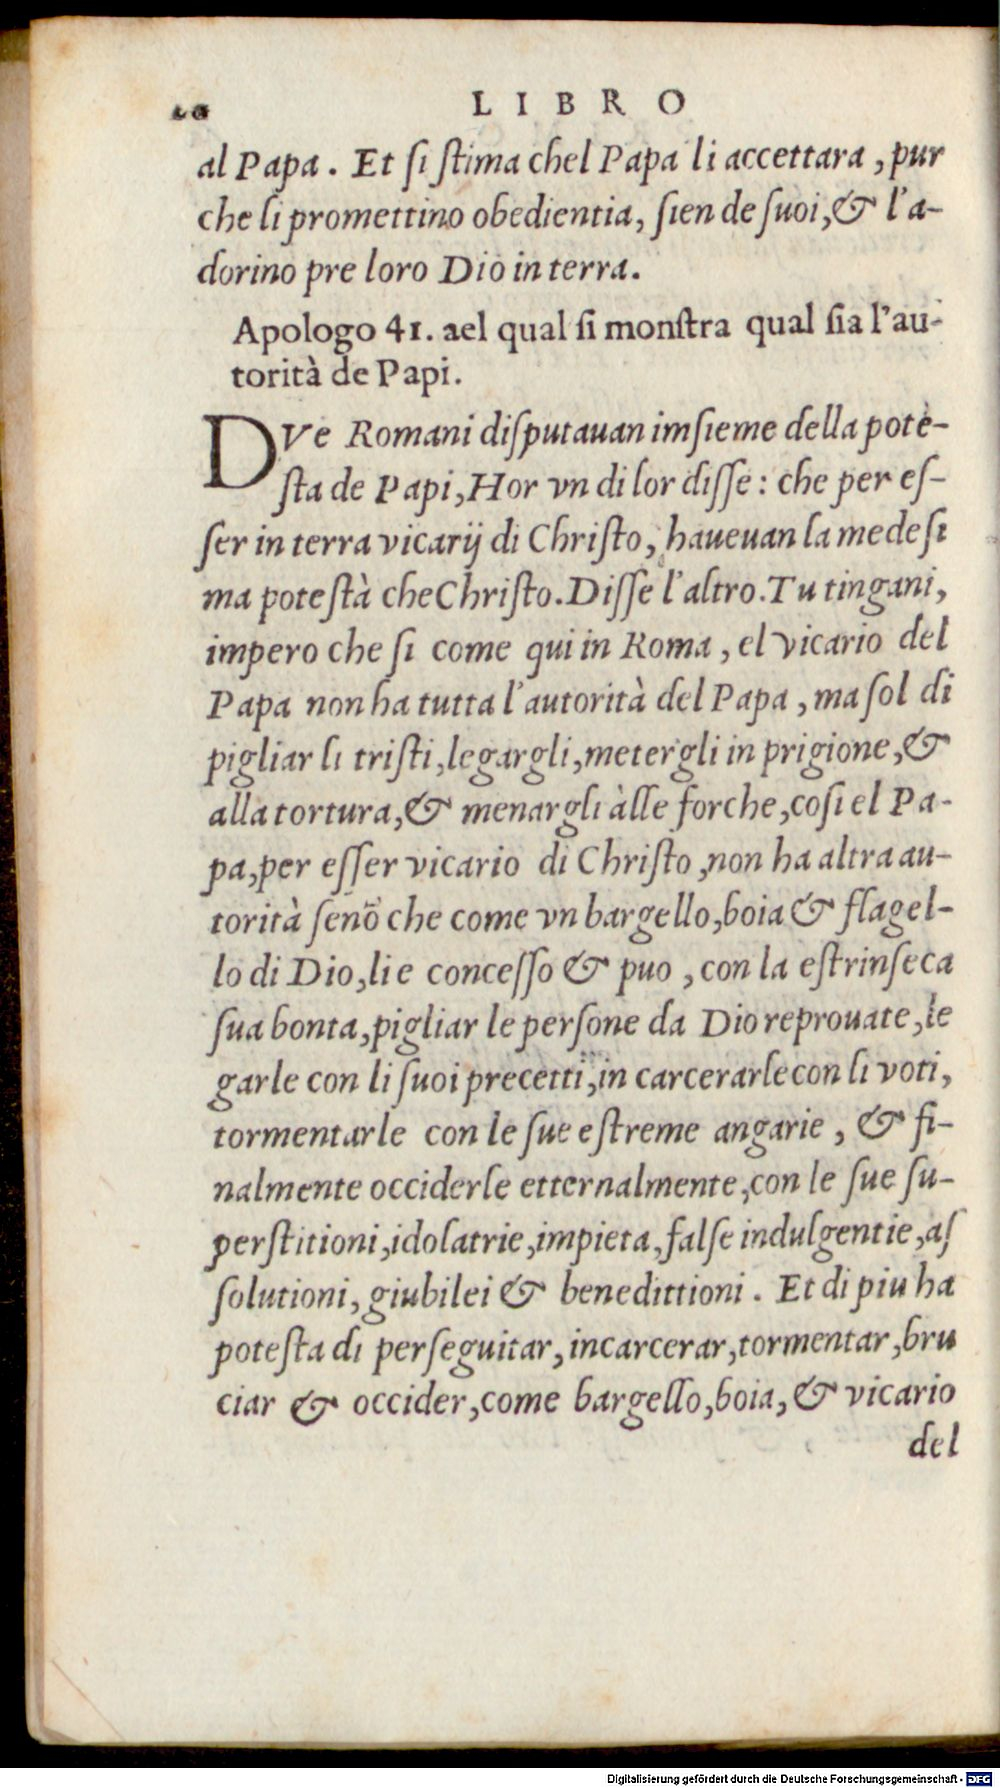 LIBRO
al Papa. Et si stima chel Papa li accettara, pur
che li promettino obedientia, sien de suoi, & l'a-
dorino pre loro Dio in terra.
Apologo 41. ael qual si monstra qual sia l'au-
torità de Papi.
DVe Romani disputauan imsieme della pote-
sta de Papi, Hor vn di lor disse: che per es-
ser in terra vicarij di Christo, haueuan la medesi
ma potestà che Christo. Disse l'altro. Tu tingani,
impero che si come qui in Roma, el vicario del
Papa non ha tutta l'autorità del Papa, ma sol di
pigliar li tristi, legargli, metergli in prigione, &
alla tortura, & menargli àlle forche, cosi el Pa-
pa, per esser vicario di Christo, non ha altra au-
torità senõ che come vn bargello, boia & flagel-
lo di Dio, li e concesso & puo, con la estrinseca
sua bonta, pigliar le persone da Dio reprouate, le
garle con li suoi precetti, in carcerarle con li voti,
tormentarle con le sue estreme angarie, & fi-
nalmente occiderle etternalmente, con le sue su-
perstitioni, idolatrie, impieta, false indulgentie, as
solutioni, giubilei & benedittioni. Et di piu ha
potesta di perseguitar, incarcerar, tormentar, bru
ciar & occider, come bargello, boia, & vicario
del
Digitalisierung gefördert durch die Deutsche Forschungsgemeinschaft - DFG